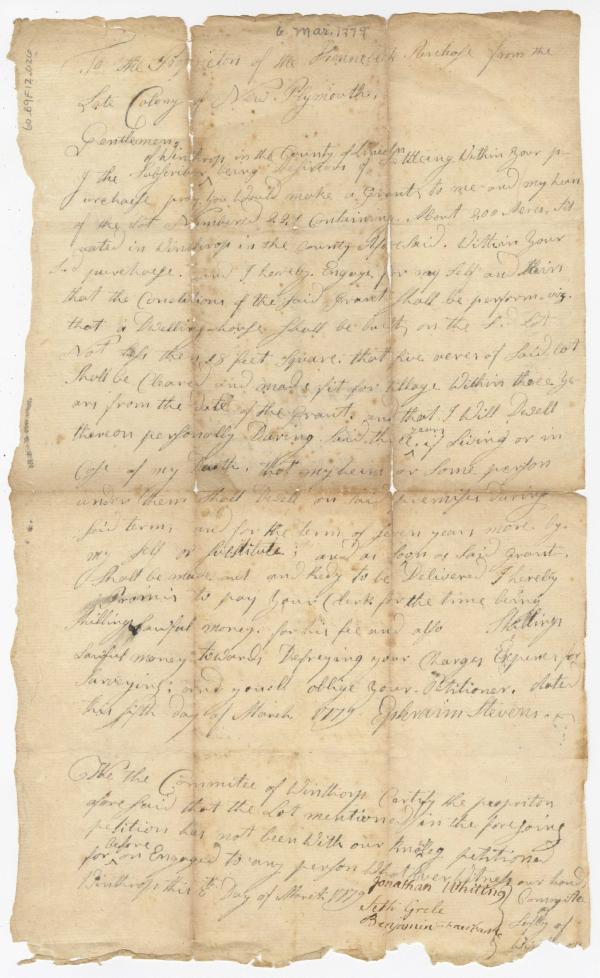 6 Mar. 1779
60.D9F12.020
To the Proprietors of the Kennebeck Purchase from the
Late Colony of New Plymouth.
Gentlemen,
of Winthrop in the County of Lincoln
I the Subscriber being Desirous of Settleing Within your p-
urchase pray you Would make a Grant to me and my heirs
of the Lot Numbered 221 Containing About 200 Acres, Sit
uated in Winthrop in the County Afore Said. Within your
Sd purchase. and I hereby Engage for my Self and Heirs
that the Conditions of the Said Grant Shall be perform. viz.
that a Dwelling house Shall be built on the Sd Lot
Not less then 18 feet Square: that five acres of Said lot
Shall be Cleared and made fit for tillage Within three Ye-
ars from the date of the Grant. and that I Will Dwell
years
thereon personally During Said three, if Living or in
Case of my Death, that my heirs or Some person
under them Shall Dwell on Said premises during
Said term; and for the term of Seven years more by
my Self or Substitute: and as Soon as Said Grant
Shall be made out and Redy to be Delivered I hereby
Promis to pay your Clerk for the time being
Shillings Lawful money for his fee and also Shillings
Lawful money towards Defreying your Charges Expences for
Surveying: and youll oblige your Petitioner. dated
this fifth day of March 1779 Ephraim Stevens.
We the Committee of Winthrop Certify the propriton
afore Said that the Lot mentioned in the foregoing
petition has not been With our Knolleg petitioned
before
for or Engaged to any person What Ever Witness our hand
Winthrop this Day of March 1779
Jonathan Whiting
Seth Grele
Benjamin
Committe
of